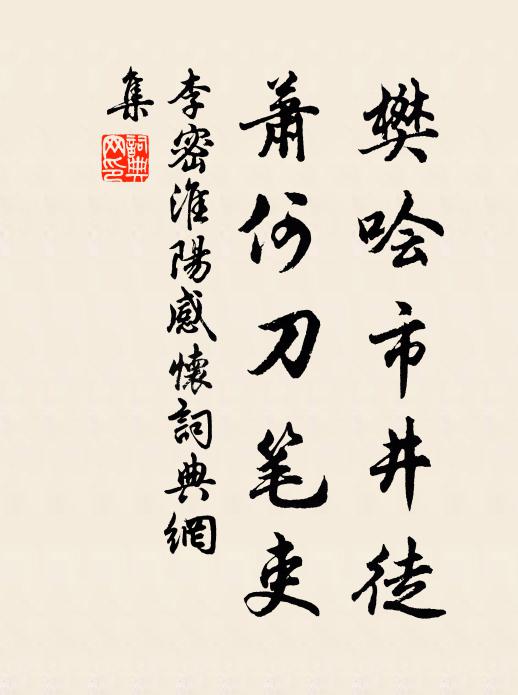 樊哙市井徒
萧何刀笔吏
李密淮陽感懷詞典網
集
詞典
网印